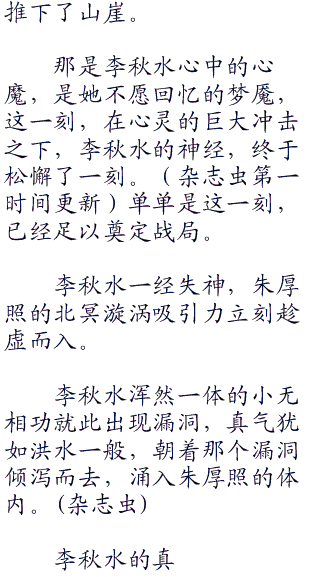 推下了山崖。
那是李秋水心中的心
魔，是她不愿回忆的梦魇，
这一刻，在心灵的巨大冲击
之下，李秋水的神经，终于
松懈了一刻。（杂志虫第一
时间更新）单单是这一刻，
已经足以奠定战局。
李秋水一经失神，朱厚
照的北冥漩涡吸引力立刻趁
虚而入。
李秋水浑然一体的小无
相功就此出现漏洞，真气犹
如洪水一般，朝着那个漏洞
倾泻而去，涌入朱厚照的体
内。(杂志虫)
李秋水的真